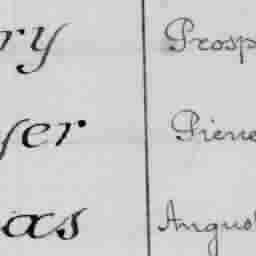 ry Prosp
yer Pierre
as August